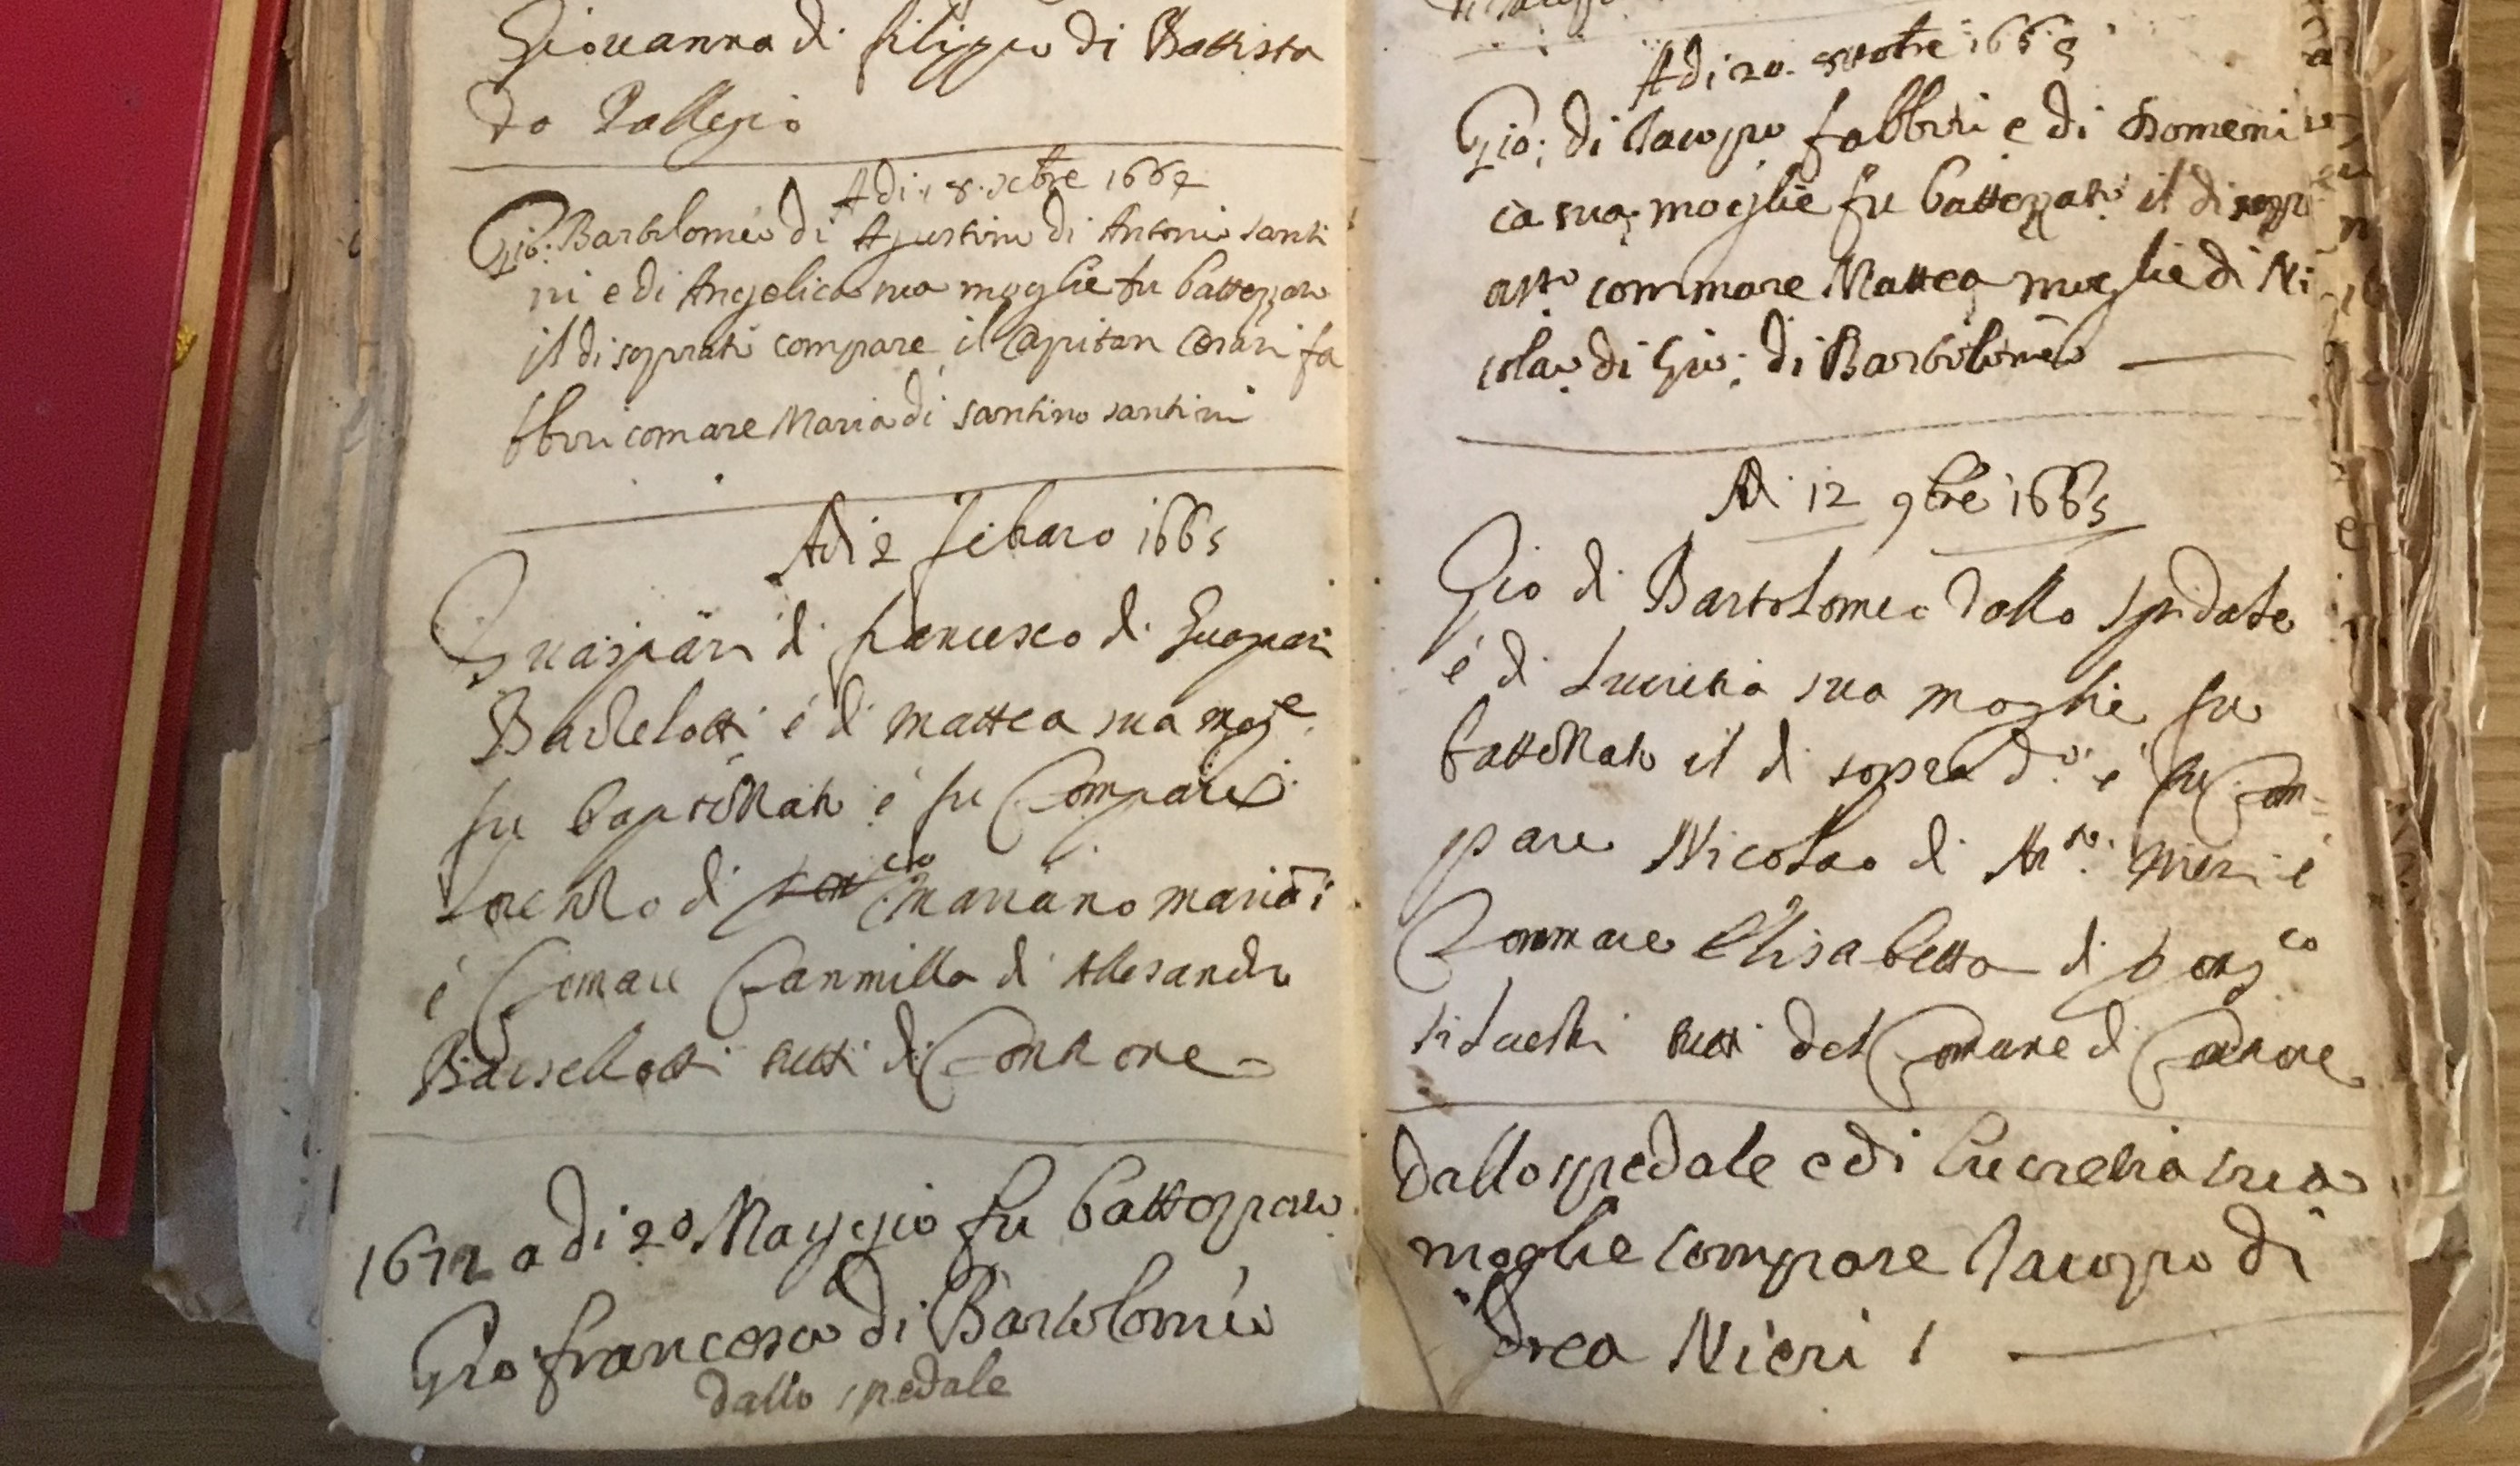 Giovanna di filippo di Battista
da Pallegio
Adi 18 setbre 1664
Gio: Bartolomeo di Agustino di Antonio santi
ni e di Angelica sua moglie fu battezzato
il di soprato compare il Capitan Cesari fa
bbri comare Maria di santino santini
Adi 2 febraro 1665
Guaspari di francesco di Guaspari
Barselotti é di mattea sua moge
fu baptizzato é fu Compare
Lorenzo di mariano mariāi
é Comare Canmilla di Allesandro
Barsellotti tutti di Controne
1672 a di 20 Maggio fu battezzato
Gio francesco di Bartolomeo
dallo spedale
Adi 20 ottobre 1665
Gio: di Iacopo fabbri e di Domeni
ca sua moglie fu battezzato il di sopr
asto commare Mattea moglie di Ni
colao di Gio: di Bartolomeo
Adi 12 9bre 1665
Gio di Bartolomeo dallo spedale
é di Lucretia sua moglie fu
battezzato il di sopra do é fu Com-
pare Nicolao di Nieri é
Commare Elisabetta di
tutti del Comune di Controne
dallo spedale e di Lucretia sua
moglie compare Iacopo di
drea Nieri